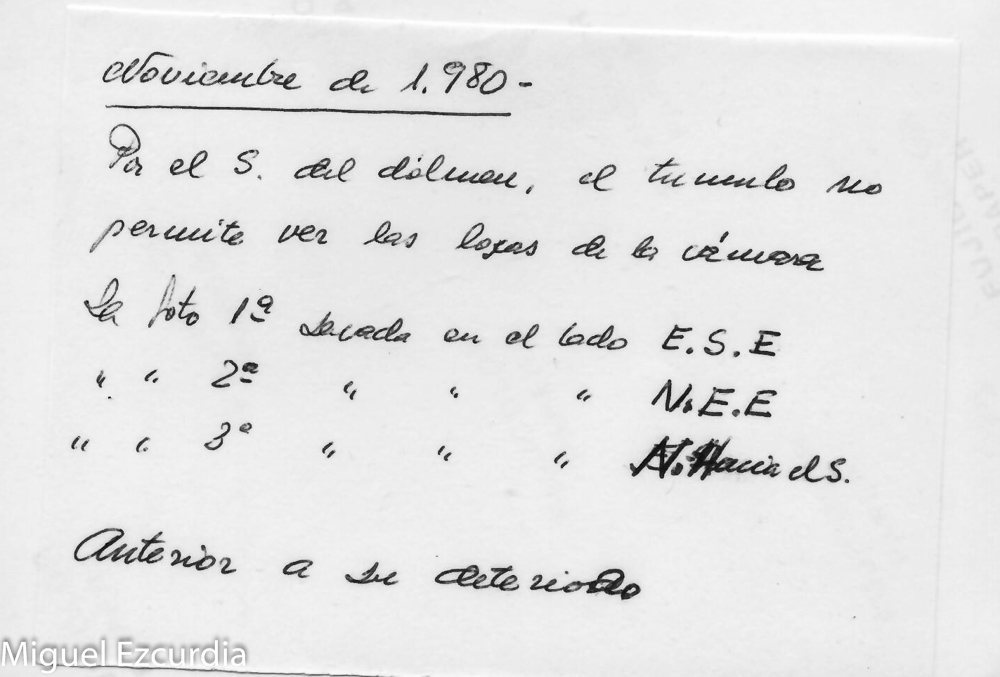 Noviembre de 1.980-
Por el S. del dólmen, el tumulo no
permite ver las losas de la cámara
La foto 1ª sacada en el lado E.S.E
" " 2ª " " " N.E.E
" " 3ª " " " N. Hacia el S.
Anterior a su deterioro
Miguel Ezcurdia